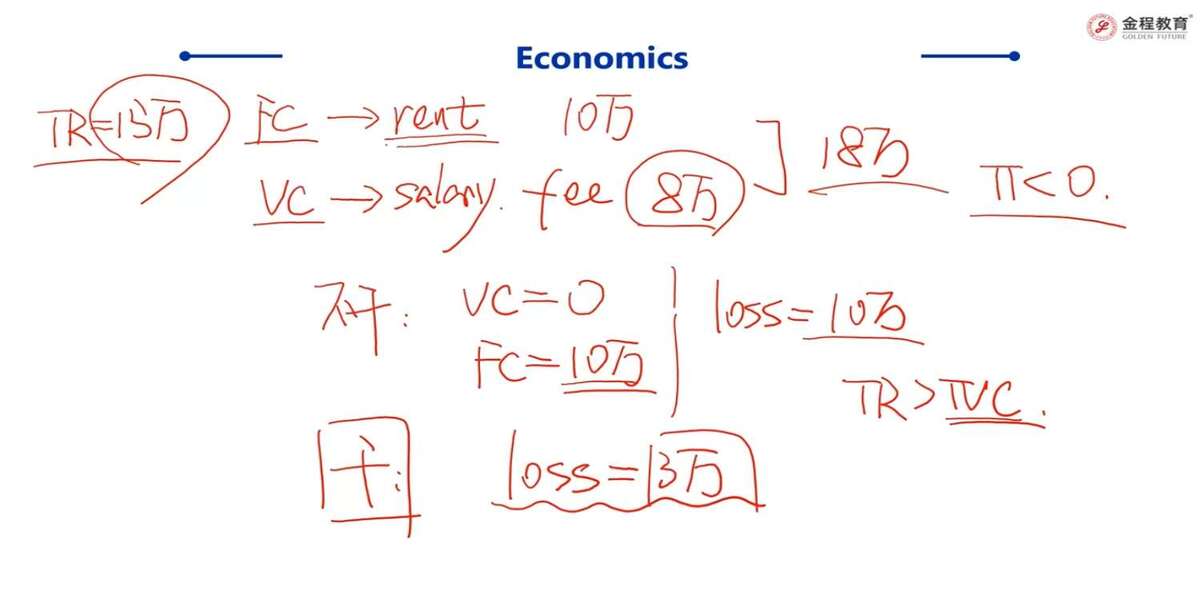 金程教育
GOLDEN FUTURE
Economics
TR=15万 FC → rent 10万
VC → salary. fee 8万 18万 π<0.
VC=0 loss=10万
FC=10万
TR>TVC.
干: loss=3万